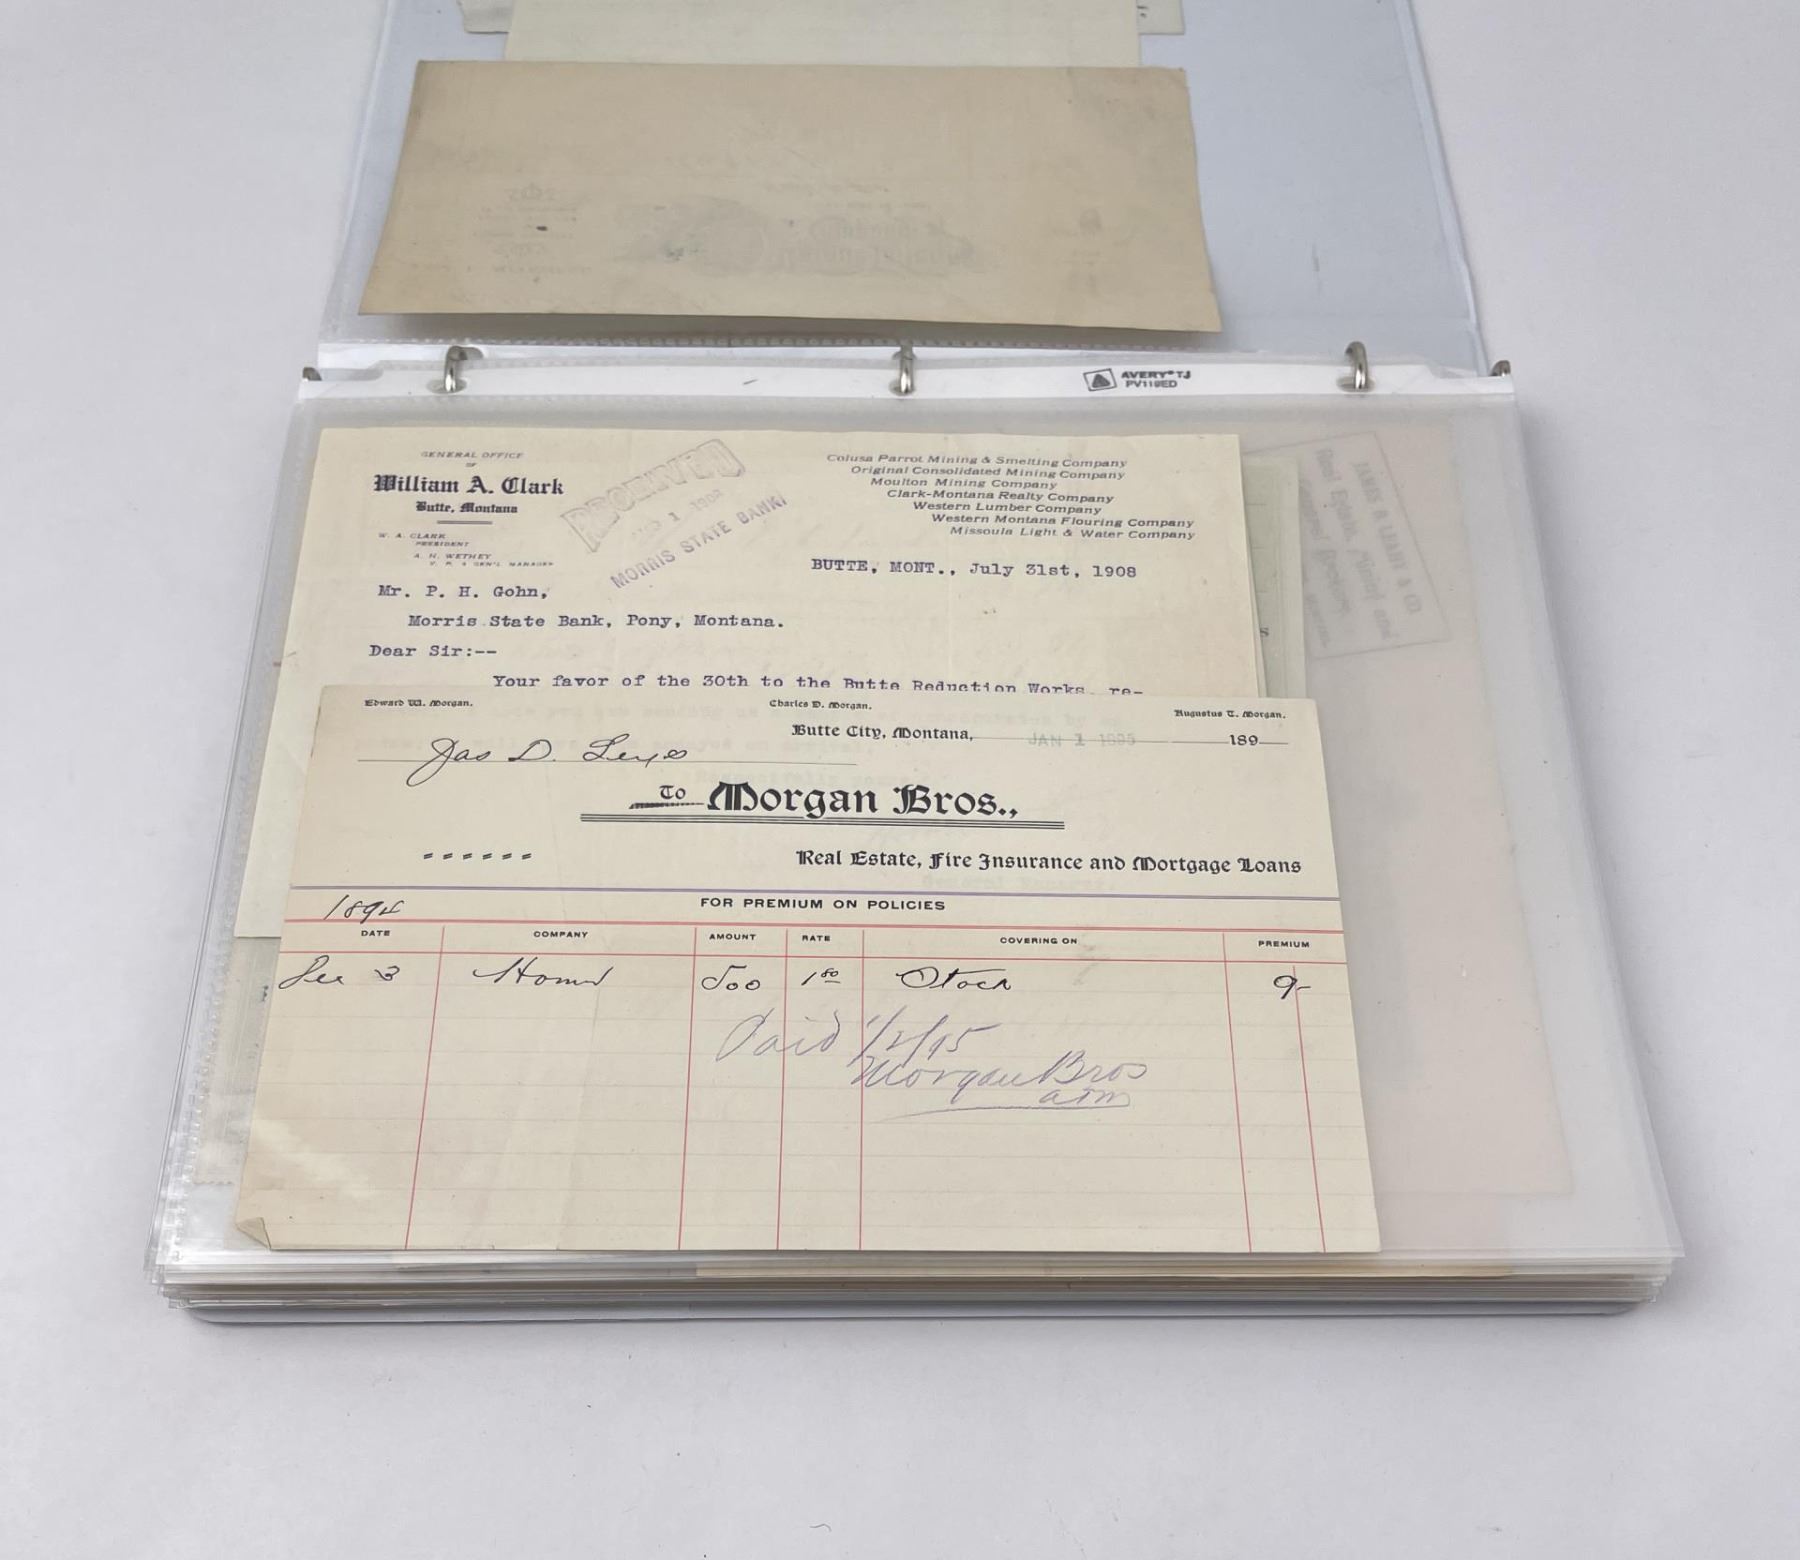 AVERY® TJ
PV119ED
GENERAL OFFICE
OF
William A. Clark
Butte, Montana
W. A. CLARK
PRESIDENT
A. H. WETHEY
V. P. & GEN'L MANAGER
1 1908
MORRIS STATE BANK
Colusa Parrot Mining & Smelting Company
Original Consolidated Mining Company
Moulton Mining Company
Clark-Montana Realty Company
Western Lumber Company
Western Montana Flouring Company
Missoula Light & Water Company
BUTTE, MONT., July 31st, 1908
Mr. P. H. Gohn,
Morris State Bank, Pony, Montana.
Dear Sir:--
Your favor of the 30th to the Butte Reduction Works, re-
Edward W. Morgan.
Charles D. Morgan.
Augustus T. Morgan.
Butte City, Montana, JAN 1 1895 189
Jas D.
To Morgan Bros.,
Real Estate, Fire Insurance and Mortgage Loans
1894
FOR PREMIUM ON POLICIES
DATE COMPANY AMOUNT RATE COVERING ON PREMIUM
Dec 3 Home 500 1 80 Stock 9-
Paid 1/2/95
Morgan Bros
atm
JAMES A. LEARY & CO.
Real Estate, and